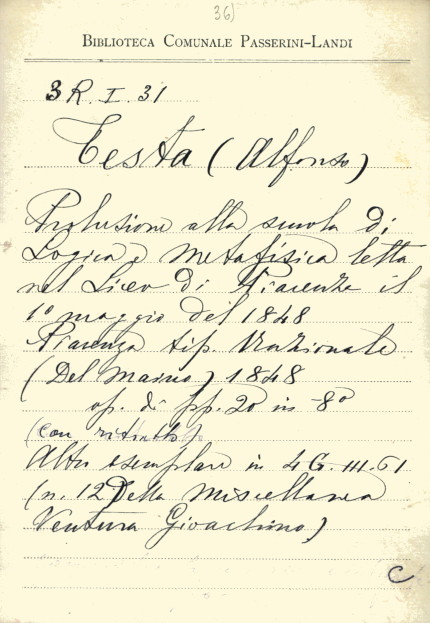 36)
BIBLIOTECA COMUNALE PASSERINI-LANDI
3R. I. 31
Testa (Alfonso)
Prolusione alla scuola di
Logica e Metafisica letta
nel Liceo di Piacenza il
1º maggio del 1848
Piacenza tip. Nazionale
(Del Maino) 1848
op. di pp. 20 in -8º
(con ritratto)
Altro esemplare in 4G. III. 61
(n. 12 Della Miscellanea
Ventura Gioachimo)
C